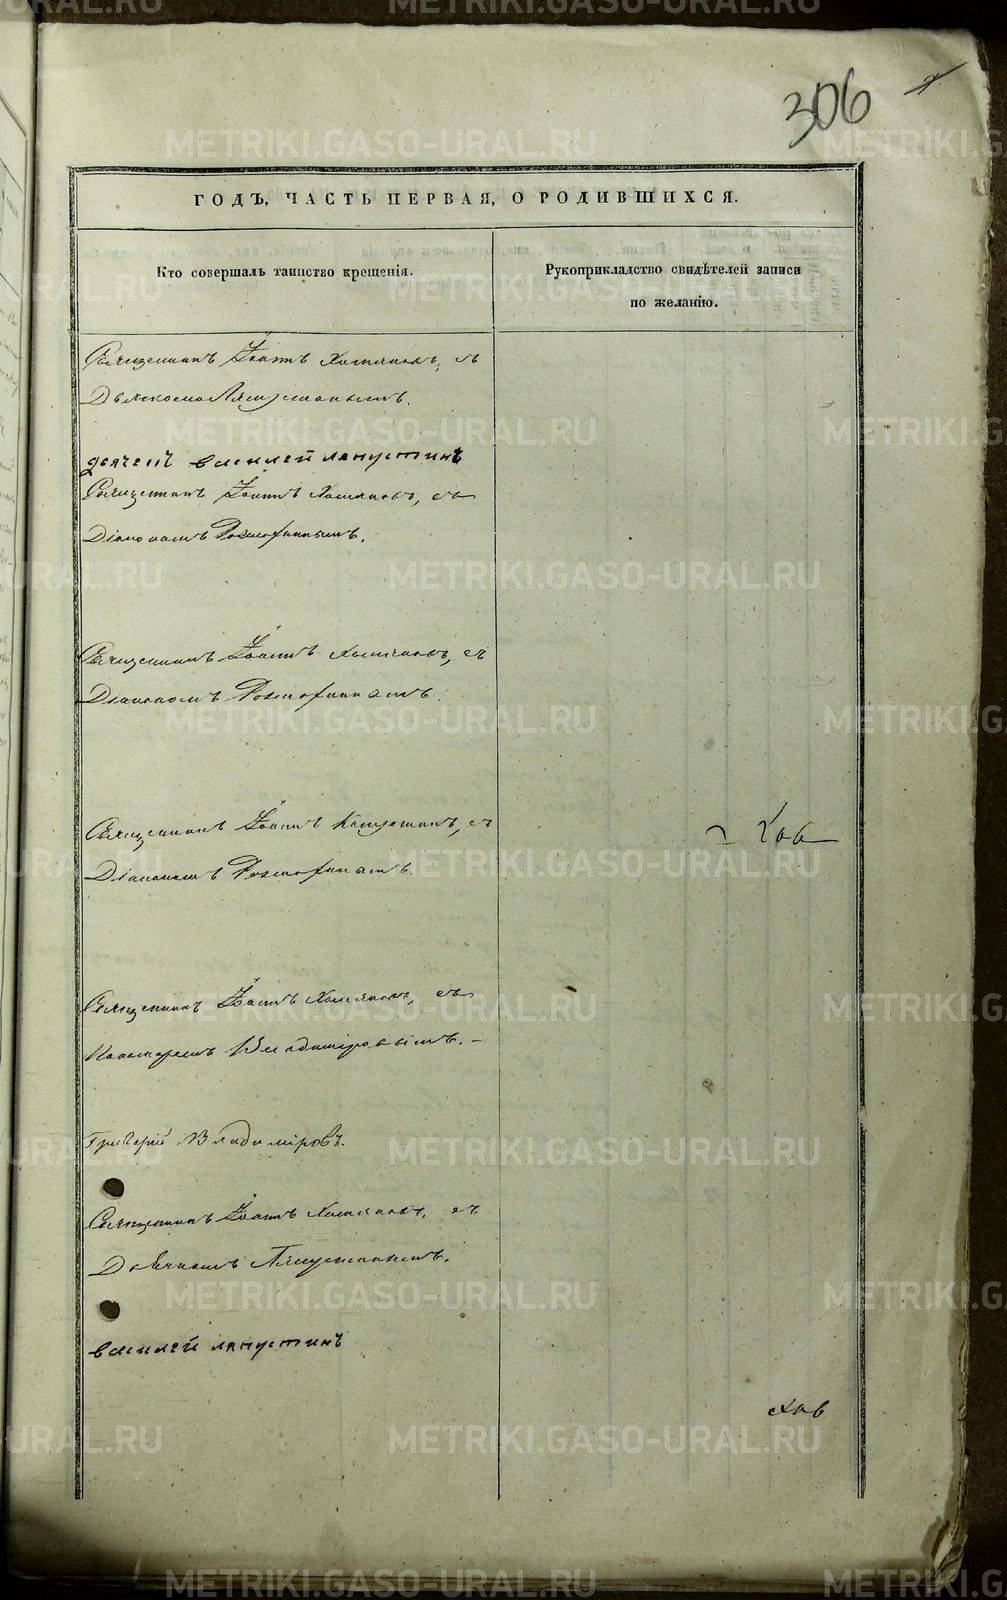 306
ГОДЪ, ЧАСТЬ ПЕРВАЯ, О РОДИВШИХСЯ.
Кто совершалъ таинство крещенія.
Рукоприкладство свидѣтелей записи
по желанію.
Священникъ Іоаннъ Хомяковъ, съ
дьячекъ василей лапустинъ
Священникъ Іоаннъ Хомяковъ, съ
Діакономъ
Священникъ Іоаннъ Хомяковъ, съ
Діакономъ
Священникъ Іоаннъ съ
Діакономъ
Священникъ Іоаннъ Хомяковъ, съ
Пономаремъ Владиміровымъ.
Григорій Владиміровъ.
Священникъ Іоаннъ Хомяковъ, съ
василей лапустинъ
METRIKI.GASO-URAL.RU